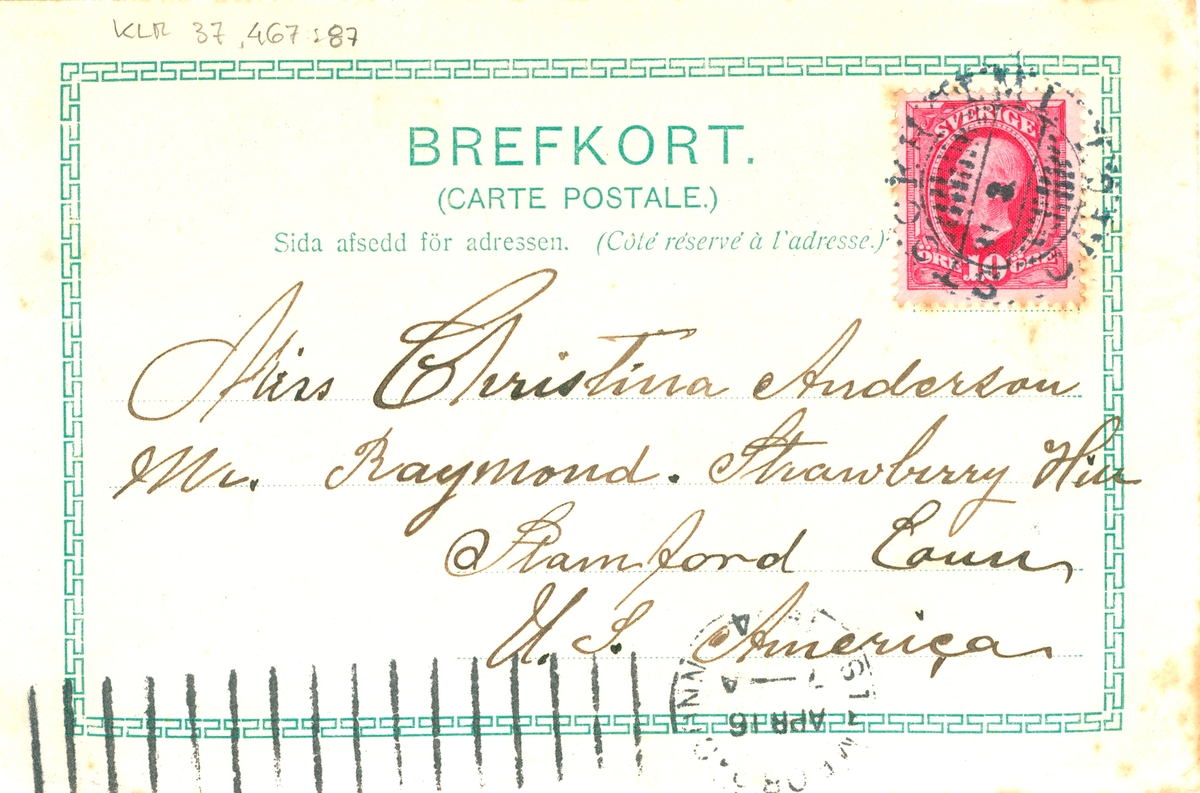 KLR 37,467:87
BREFKORT.
(CARTE POSTALE.)
Sida afsedd för adressen. (Côté réservé à l'adresse.)
SVERIGE
ÖRE 10 ÖRE
Miss Christina Anderson
Mr. Raymond. Strawberry Hill
Stamford Conn
U. S. America
APR 16
4